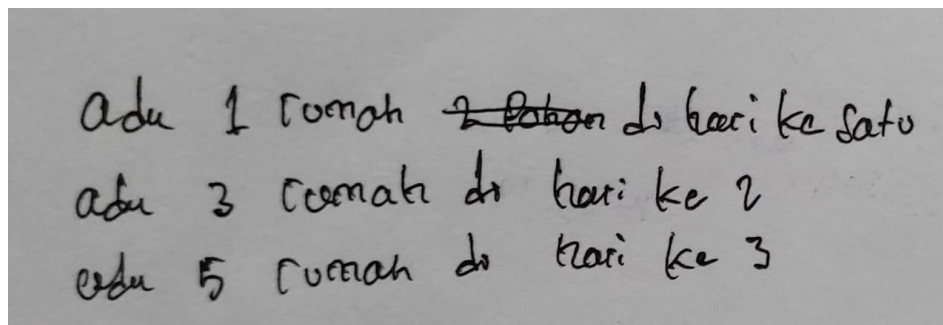 ada 1 rumah di hari ke satu
ada 3 rumah di hari ke 2
ada 5 rumah di hari ke 3